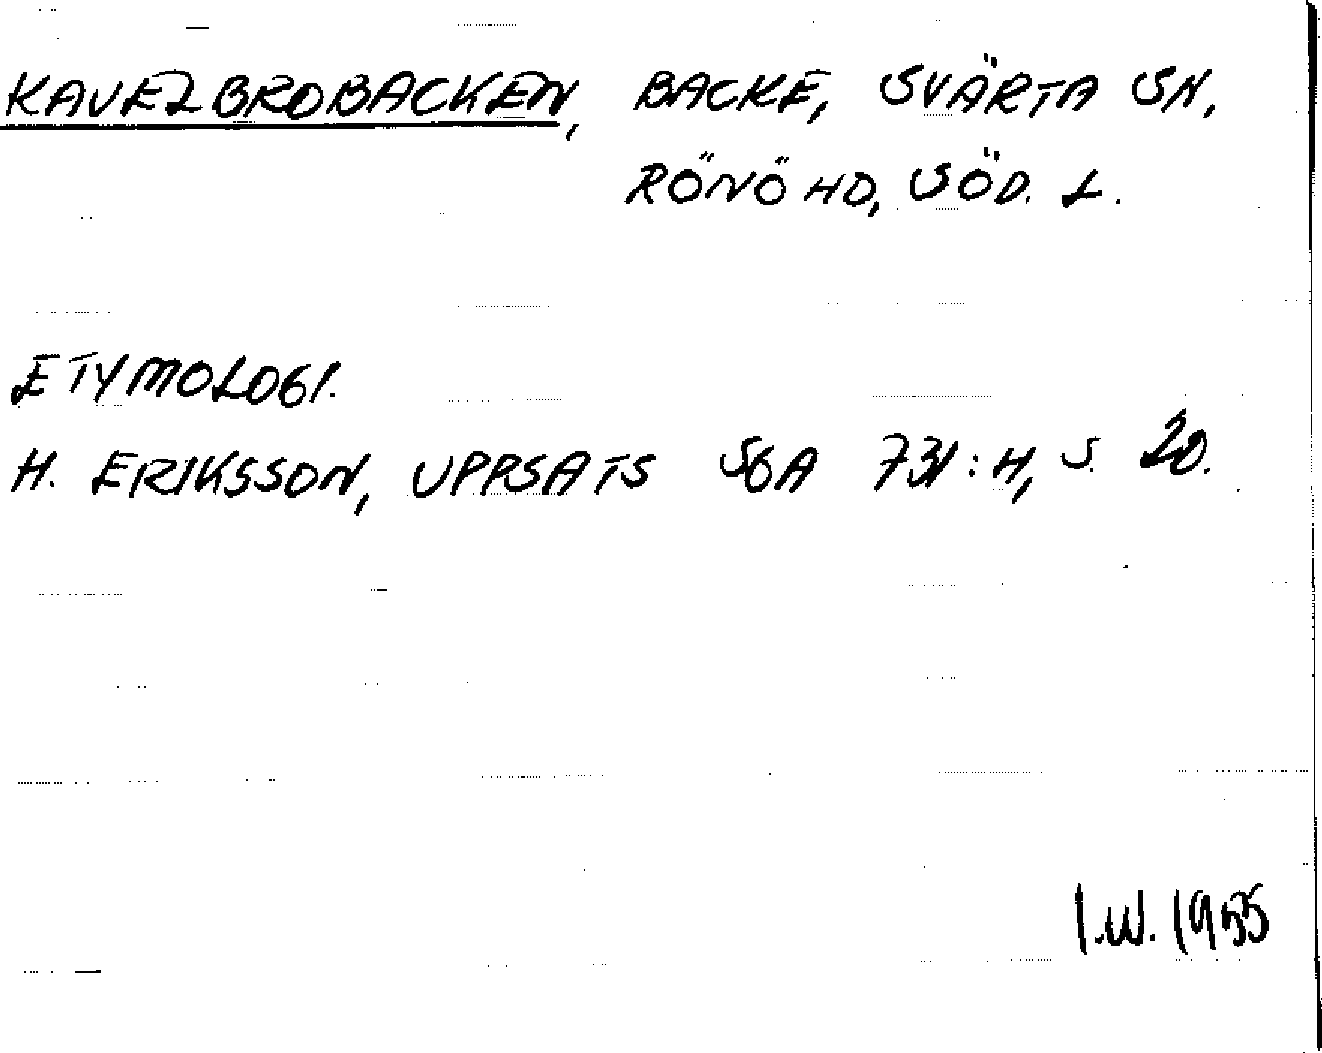 KAVELBROBACKEN, BACKE, SVÄRTA SN,
RÖNÖ HD, SÖD. L.
ETYMOLOGI.
H. ERIKSSON, UPPSATS SGA 731:H, S. 20.
I.W. 1955